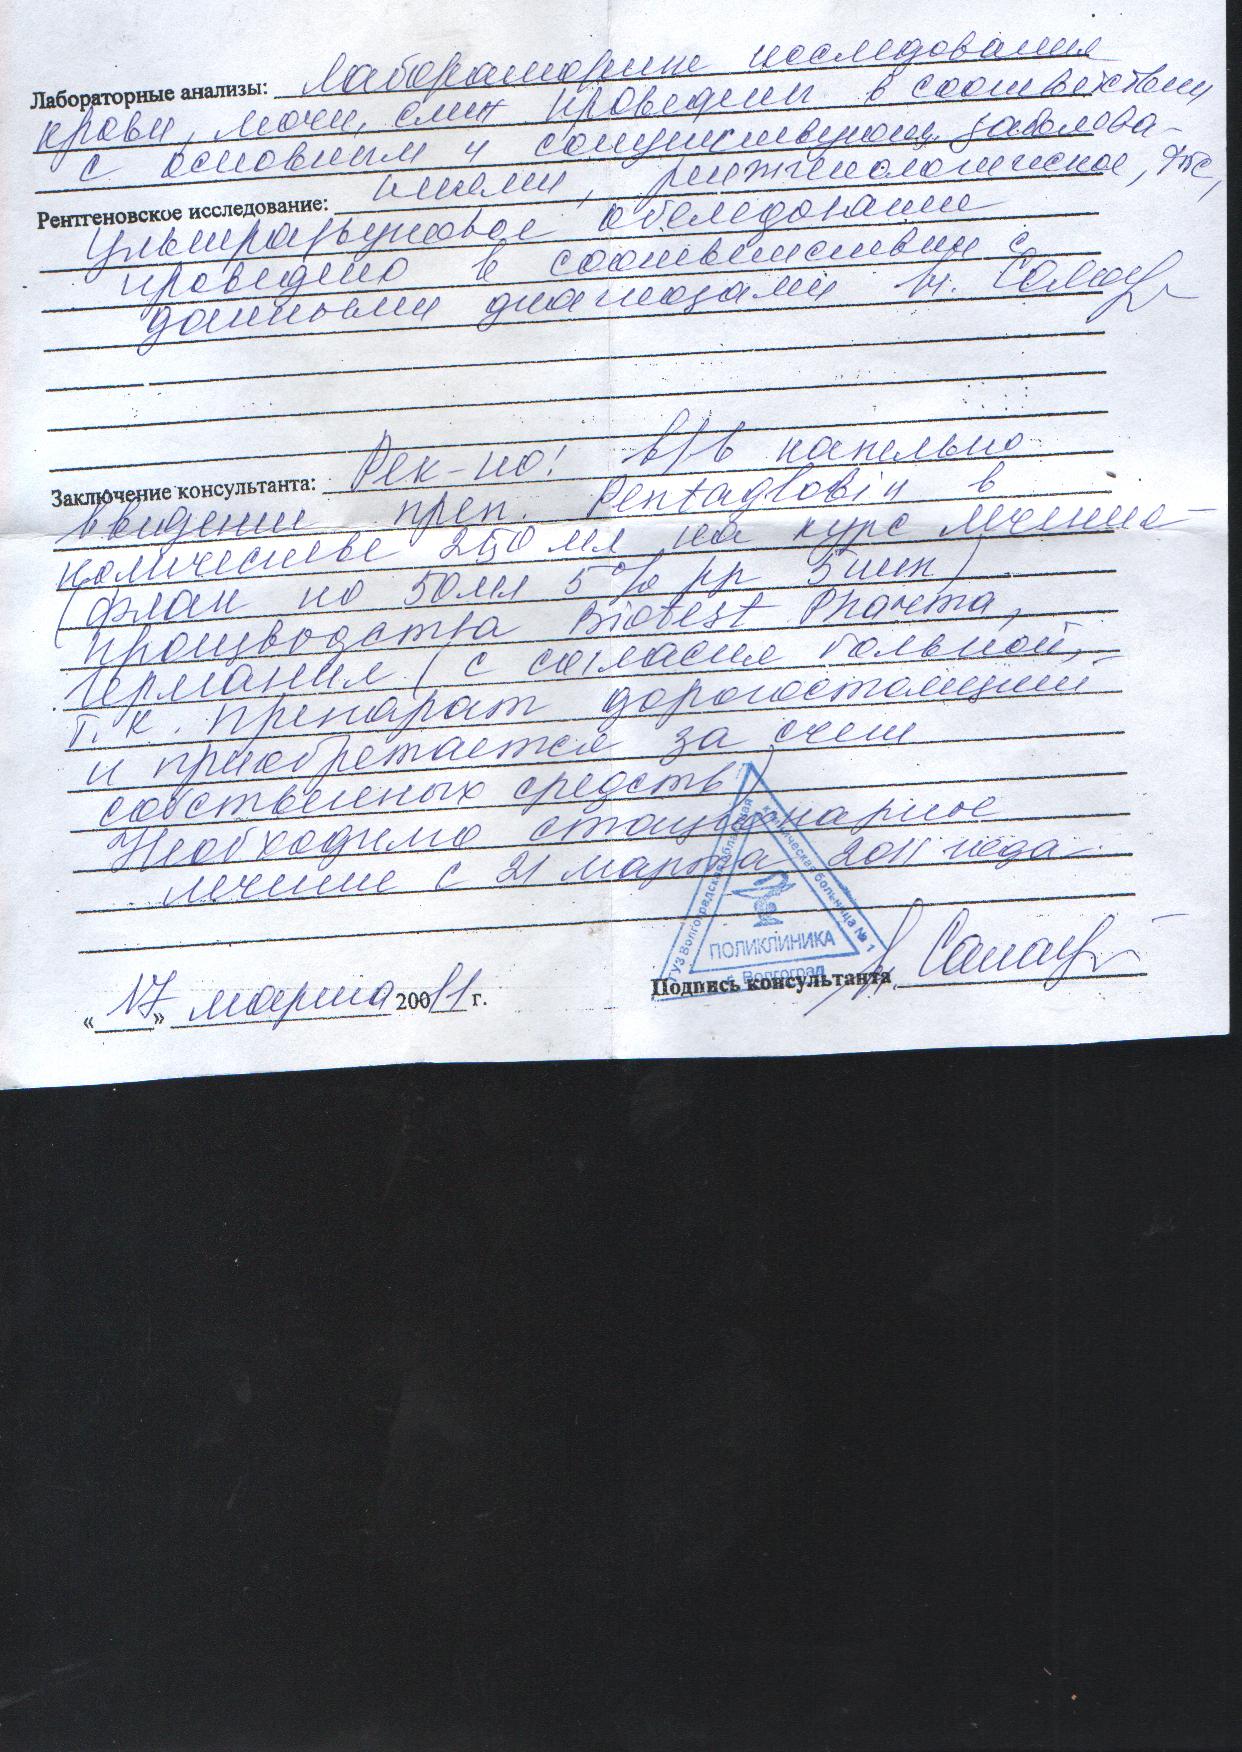 Лабораторные анализы: Лабораторные исследования
крови, мочи, проведены в соответствии
с основным и сопутствующим заболева-
Рентгеновское исследование: ниями, рентгенологическое,
Ультразвуковое обследование
проведено в соответствии с
данными диагнозами
Заключение консультанта: Рек-но! в/в капельно
введение преп. Pentaglobin в
количестве 250 мл на курс лечения
(флак по 50 мл 5% рр 5шт)
производства Biotest Pharma,
Германия (с согласия больной,
т.к. препарат дорогостоящий
и приобретается за счет
собственных средств)
Необходимо стационарное
лечение с 21 марта 2011 года.
ГУЗ Волгоградская областная клиническая больница № 1
ПОЛИКЛИНИКА
г. Волгоград
Подпись консультанта
«17» марта 20011 г.